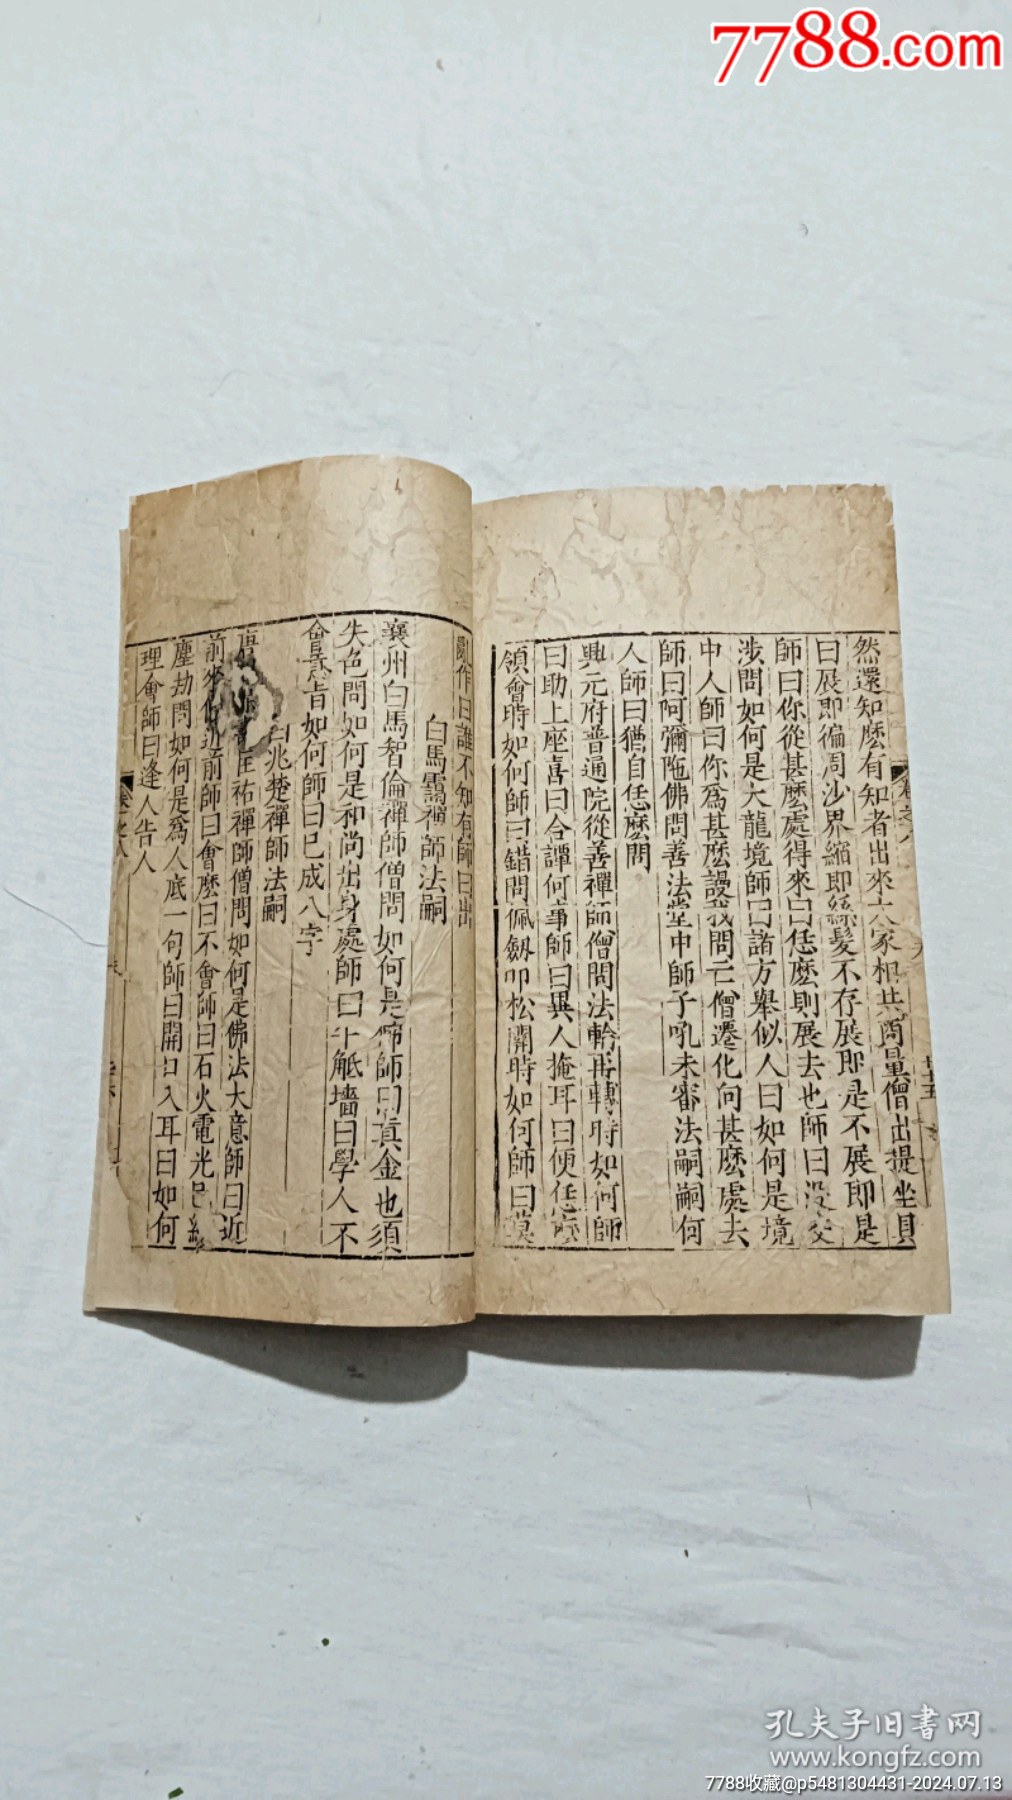 7788.com
然還知麽有知者出來大家相共商量僧出提坐具
曰展即徧周沙界縮即絲髮不存展即是不展即是
師曰你從甚麽處得來曰恁麽則展去也師曰没交
涉問如何是大龍境師曰諸方舉似人曰如何是境
中人師曰你爲甚麽謾我問亡僧遷化向甚麽處去
師曰阿彌陁佛問善法堂中師子吼未審法嗣嗣何
人師曰猶自恁麽問
興元府普通院從善禪師僧問法輪再轉時如何師
曰助上座喜曰合譚何事師曰異人掩耳曰便恁麽
領會時如何師曰錯問佩劔叩松關時如何師曰莫
卷之八
亂作曰誰不知有師曰出
白馬靄禪師法嗣
襄州白馬智倫禪師僧問如何是佛師曰真金也須
失色問如何是和尚出身處師曰牛觝墻曰學人不
會意旨如何師曰已成八字
白兆楚禪師法嗣
匡祐禪師僧問如何是佛法大意師曰近
前來僧近前師曰會麽曰不會師曰石火電光已經
塵劫問如何是爲人底一句師曰開口入耳曰如何
理會師曰逢人告人
卷之八
孔夫子旧書网
www.kongfz.com
7788收藏@p5481304431-2024.07.13